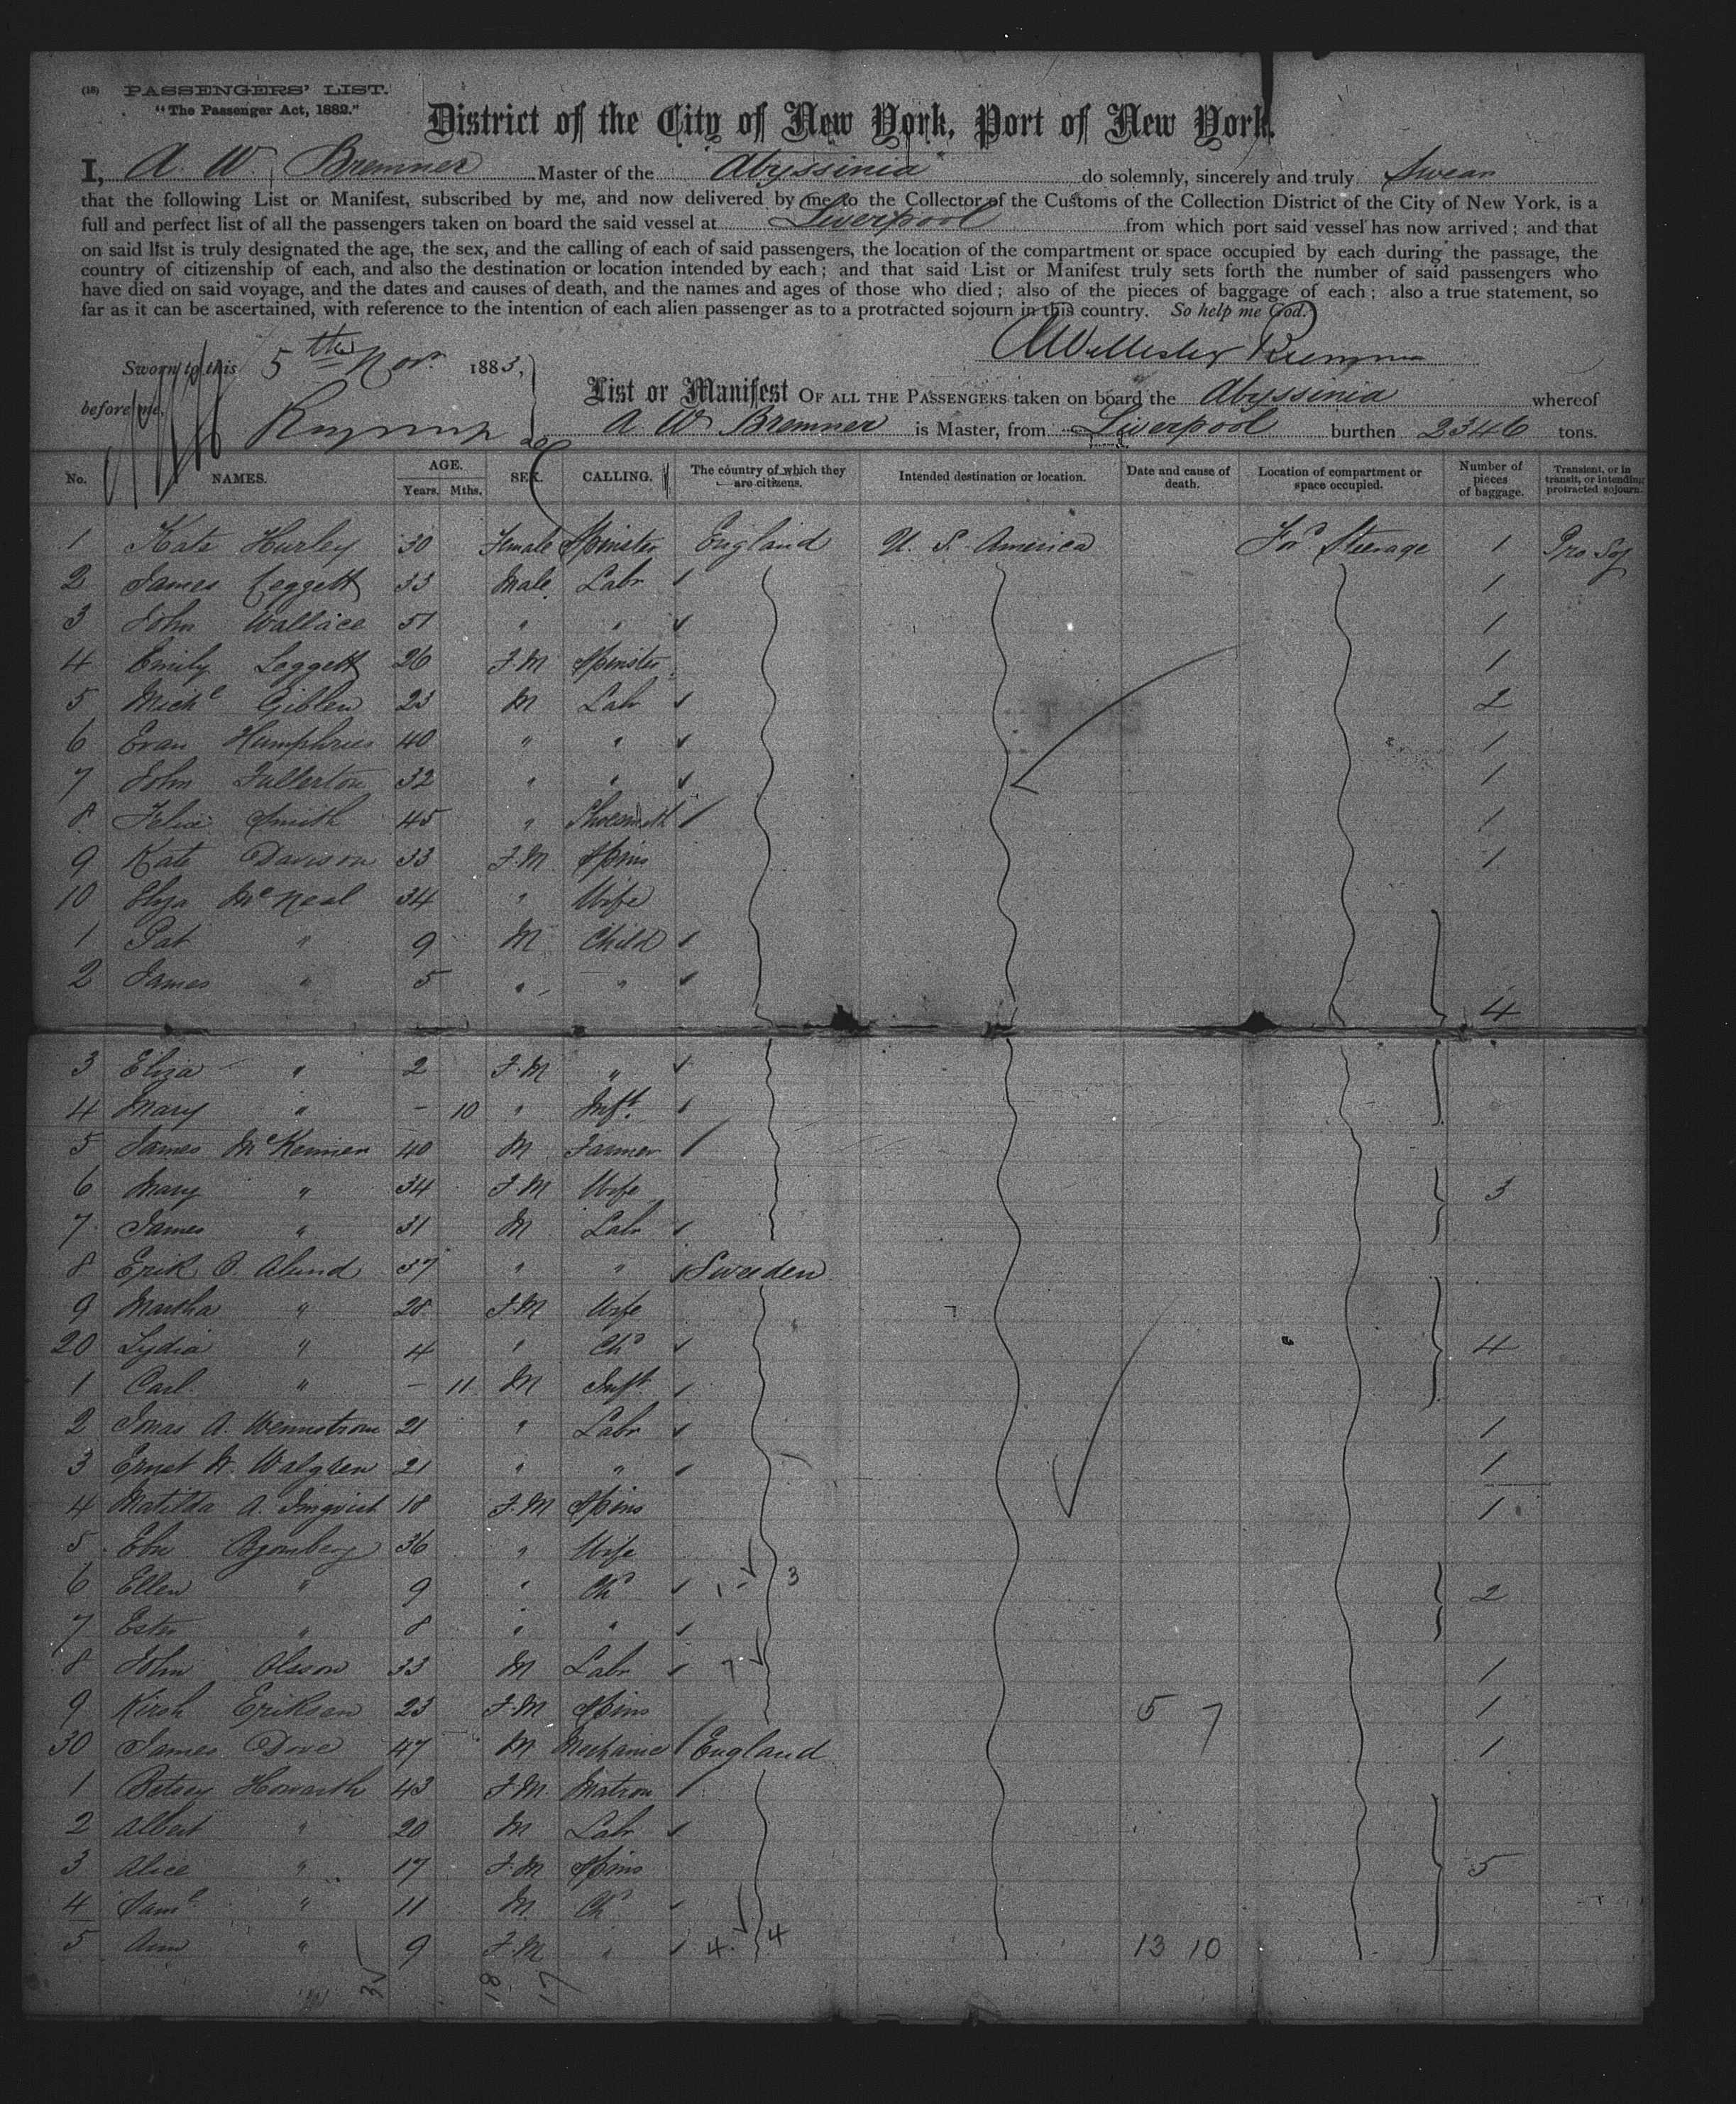 (18) PASSENGERS' LIST.
"The Passenger Act, 1882."
District of the City of New York, Port of New York.
I, A. W. Bremner Master of the "Abyssinia" do solemnly, sincerely and truly Swear
that the following List or Manifest, subscribed by me, and now delivered by me to the Collector of the Customs of the Collection District of the City of New York, is a
full and perfect list of all the passengers taken on board the said vessel at Liverpool from which port said vessel has now arrived; and that
on said list is truly designated the age, the sex, and the calling of each of said passengers, the location of the compartment or space occupied by each during the passage, the
country of citizenship of each, and also the destination or location intended by each; and that said List or Manifest truly sets forth the number of said passengers who
have died on said voyage, and the dates and causes of death, and the names and ages of those who died; also of the pieces of baggage of each; also a true statement, so
far as it can be ascertained, with reference to the intention of each alien passenger as to a protracted sojourn in this country. So help me God.
Sworn to this 5th Nov. 1883,
before me,
List or Manifest OF ALL THE PASSENGERS taken on board the Abyssinia whereof
A W Bremner is Master, from Liverpool burthen 2346 tons.
No. NAMES. AGE. Years. Mths. SEX. CALLING. The country of which they are citizens. Intended destination or location. Date and cause of death. Location of compartment or space occupied. Number of pieces of baggage. Transient, or in transit, or intending protracted sojourn.
1 Kate Hurley 30 Female Spinster England U. S. America For Steerage 1 Pro Soj
2 James Leggett 33 Male Labr 1
3 John Wallace 51 " " 1
4 Emily Leggett 26 F.M Spinster 1
5 Michl Giblen 23 M Labr 2
6 Evan Humphries 40 " " 1
7 John Fullerton 32 " " 1
8 Felix Smith 45 " Shoesmith 1
9 Kate Davison 33 F.M Spins 1
10 Eliza McNeal 34 " Wife
1 Pat " 9 M Child
2 James " 5 " " 4
3 Eliza " 2 F.M "
4 Mary " - 10 " Inft.
5 James McKennien 40 M Farmer
6 Mary " 34 F.M Wife 3
7 James " 31 M Labr
8 Erik O. Alund 37 " " Sweden
9 Martha " 28 F.M Wife
20 Lydia " 4 " Chd 4
1 Carl " - 11 M Inft
2 Jonas A. Wennstrom 21 " Labr 1
3 Ernst W. Walgren 21 " " 1
4 Matilda A. Ingvist 18 F.M Spins 1
5 36 " Wife
6 Ellen " 9 " Chd 1 - 3 2
7 Ester " 8 " "
8 John Olsson 33 M Labr 7 1
9 Eriksen 23 F.M Spins 5 7 1
30 James Dove 47 M Mechanic England 1
1 Betsey Howarth 43 F.M. Matron
2 Albert " 20 M Labr
3 Alice " 17 F.M Spins 5
4 Saml " 11 M. Chd
5 Ann " 9 F.M " 4. 4 13 10
18 17